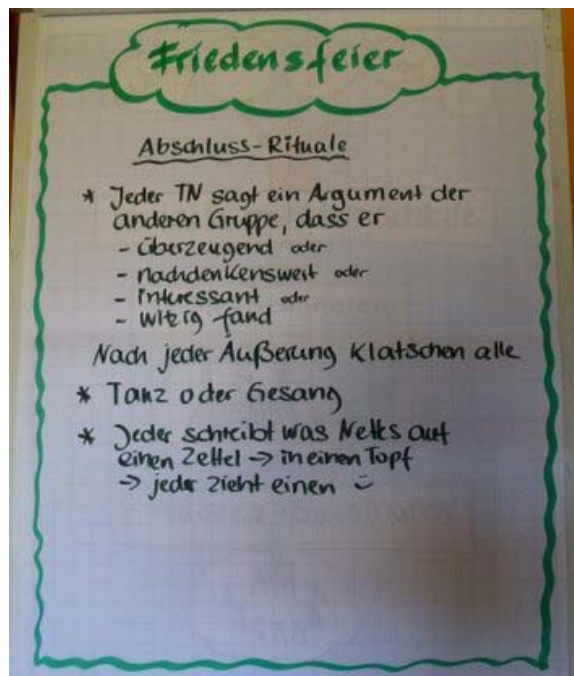 Friedensfeier
Abschluss-Rituale
* Jeder TN sagt ein Argument der
anderen Gruppe, dass er
- überzeugend oder
- nachdenkenswert oder
- interessant oder
- witzig fand
Nach jeder Äußerung klatschen alle
* Tanz oder Gesang
* Jeder schreibt was Nettes auf
einen Zettel → in einen Topf
→ jeder zieht einen